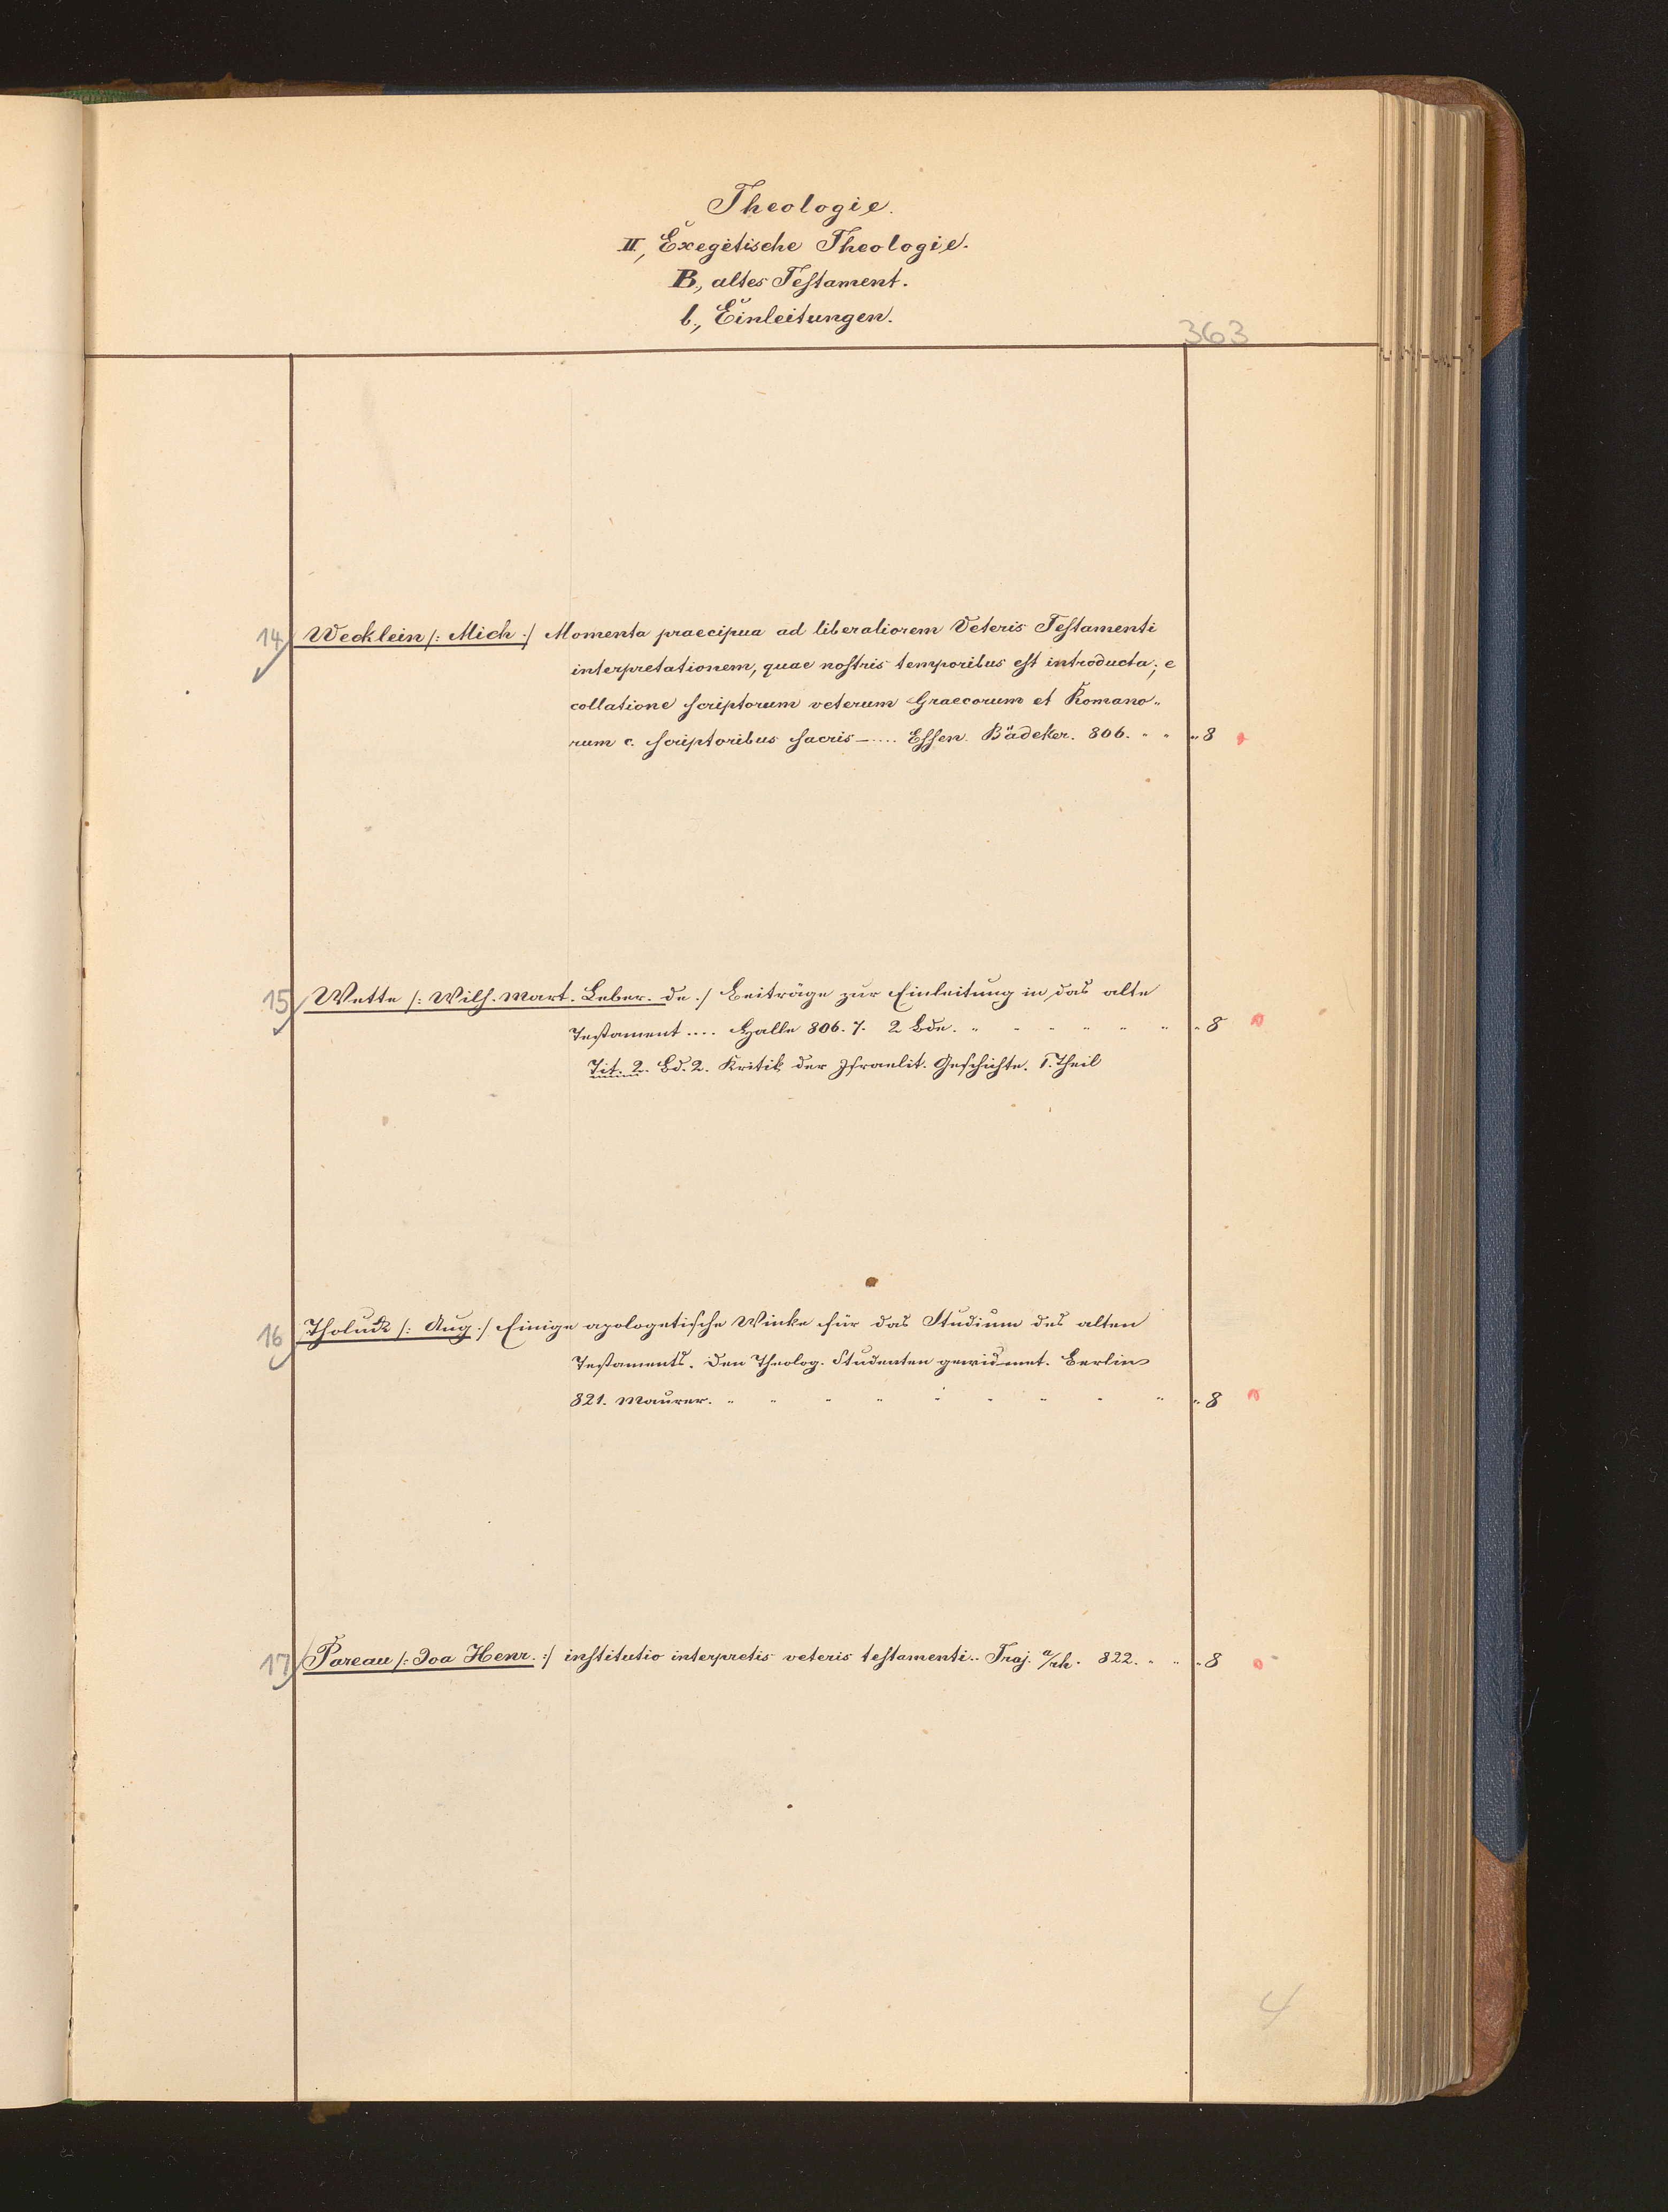 Theologie.
II, Exegetische Theologie.
B., altes Testament.
b., Einleitungen.
363
14 Wecklein /: Mich :/ Momenta praecipua ad liberaliorem Veteris Testamenti
interpretationem, quae nostris temporibus est introducta; e
collatione scriptorum veterum Graecorum et Romano„
rum c. scriptoribus sacris — .... Essen. Bädeker. 806. " " " 8
15 Wette /: Wilh. Mart. Leber. de :/ Beiträge zur Einleitung in das alte
Testament .... Halle 806. 7. 2 Bde. " " " " " " " 8
Tit. 2. Bd. 2. Kritik der Israelit. Geschichte. 1. Theil
16 Tholuck /: Aug :/ Einige apologetische Winke für das Studium des alten
Testaments. Den Theolog. Studenten gewidmet. Berlin
821. Maurer. " " " " " " " " " " 8
17 Pareau /: Joa Henr. :/ institutio interpretis veteris testamenti .. Traj. a/rh. 822. " " " 8
4